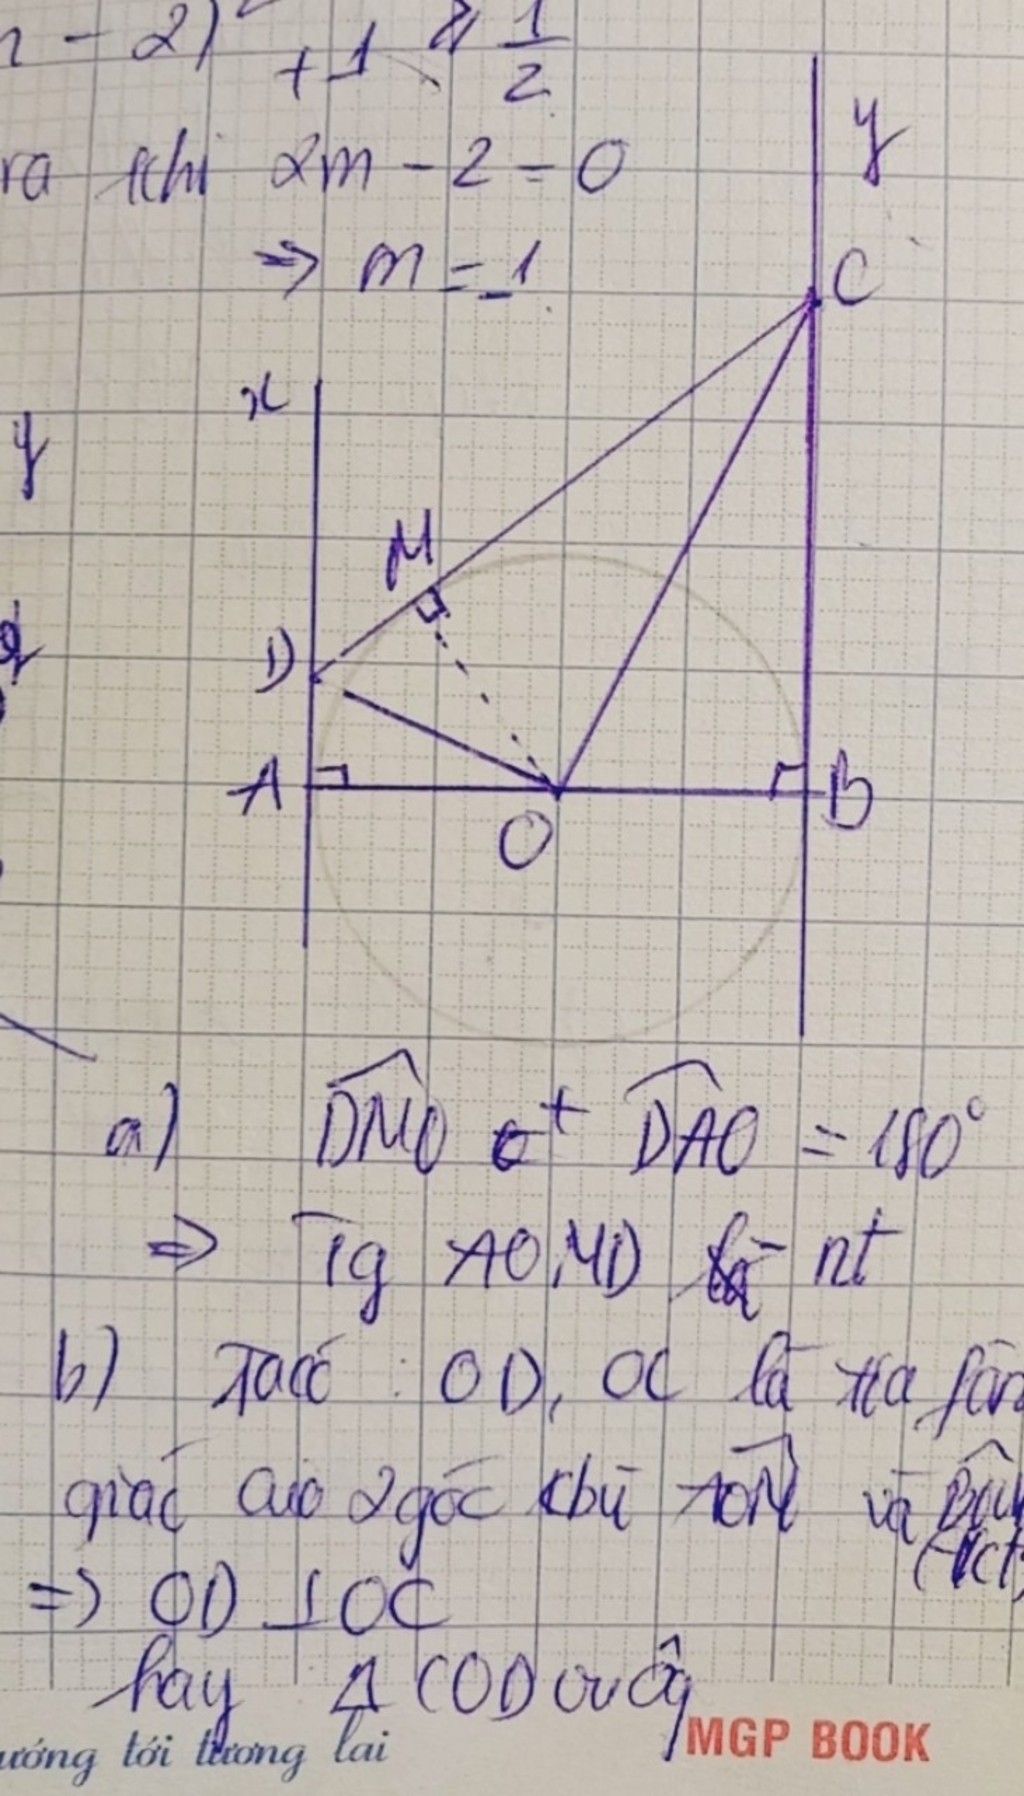 - 2)² + 1 ≥ 1/2
ra khi 2m - 2 = 0
⇒ m = 1
y
C
x
y
M
D
A
B
O
a) DMO + DAO = 180°
⇒ Tg AOMD là nt
b) Ta có : OD, OC là tia fân
giác của 2 góc kbù AOM và BOM
⇒ OD ⊥ OC
hay Δ COD vuôg
ướng tới tương lai
MGP BOOK